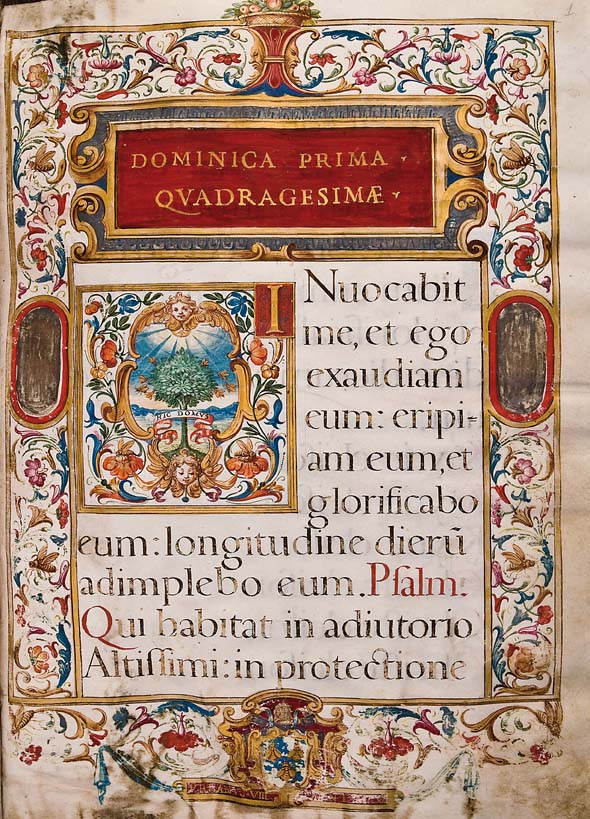 1
DOMINICA PRIMA
QVADRAGESIMÆ
I
Nuocabit
me, et ego
exaudiam
eum: eripi=
am eum, et
glorificabo
HIC DOMVS
eum: longitudine dierũ
adimplebo eum. Psalm.
Qui habitat in adiutorio
Altissimi: in protectione
VIII